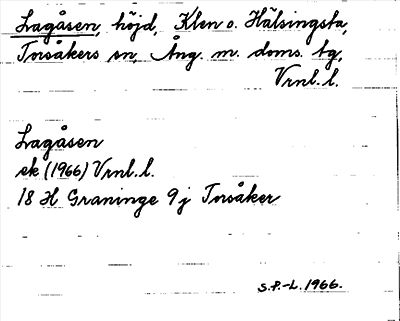 Lagåsen, höjd, Klen o. Hälsingsta,
Torsåkers sn, Ång. m. doms. tg,
Vrnl. l.
Lagåsen
ek (1966) Vrnl. l.
18 H Graninge 9 j Torsåker
S.P.-L. 1966.